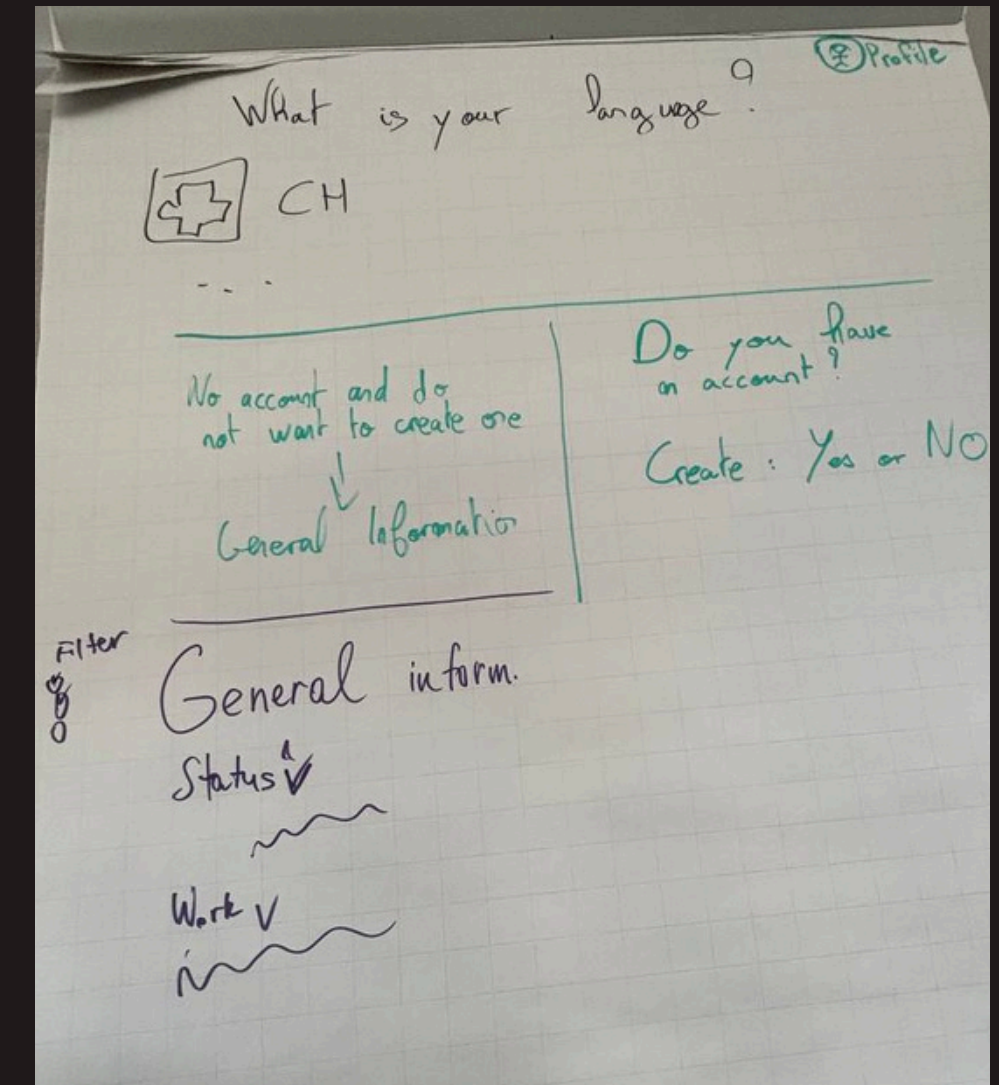 Profile
What is your language ?
CH
...
No account and do
not want to create one
General Information
Do you have
an account ?
Create : Yes or NO
Filter
General inform.
Status
Work